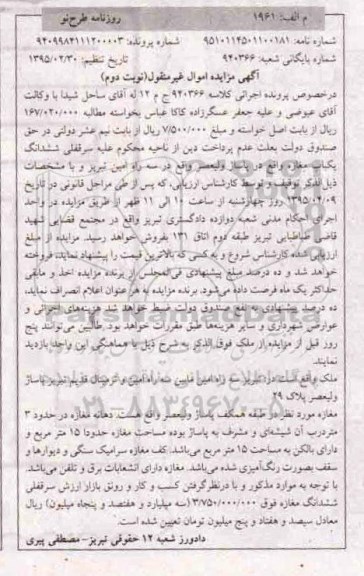 م الف: ۱۹۶۱ روزنامه طرح‌نو
شماره نامه: ۹۵۱۰۱۱۴۵۰۱۱۰۰۱۸۱ شماره پرونده: ۹۴۰۹۹۸۴۱۱۱۲۰۰۰۰۳
شماره بایگانی شعبه: ۹۴۰۳۶۶ تاریخ تنظیم: ۱۳۹۵/۰۲/۳۰
آگهی مزایده اموال غیرمنقول(نوبت دوم)
درخصوص پرونده اجرائی کلاسه ۹۴۰۳۶۶ ج م ۱۲ له آقای ساحل شیدا با وکالت
آقای عیوضی و علیه جعفر عسگرزاده کاکا عباس بخواسته مطالبه ۱۶۷/۰۲۰/۰۰۰
ریال از بابت اصل خواسته و مبلغ ۷/۵۰۰/۰۰۰ ریال از بابت نیم عشر دولتی در حق
صندوق دولت بعلت عدم پرداخت دین از ناحیه محکوم علیه سرقفلی ششدانگ
یکباب مغازه واقع در پاساژ ولیعصر واقع در سه راه امین تبریز و با مشخصات
ذیل الذکر توقیف و توسط کارشناس ارزیابی، که پس از طی مراحل قانونی در تاریخ
۱۳۹۵/۰۴/۰۹ روز چهارشنبه از ساعت ۱۰ الی ۱۱ ظهر از طریق مزایده در واحد
اجرای احکام مدنی شعبه دوازده دادگستری تبریز واقع در مجتمع قضایی شهید
قاضی طباطبایی تبریز طبقه دوم اتاق ۱۳۱ بفروش خواهد رسید. مزایده از مبلغ
ارزیابی شده کارشناس شروع و به کسی که بالاترین قیمت را پیشنهاد نماید، فروخته
خواهد شد و ده درصد مبلغ پیشنهادی فی‌المجلس از برنده مزایده اخذ و مابقی
حداکثر یک ماه فرصت داده می‌شود. برنده مزایده به هر عنوان اعلام انصراف نماید،
ده درصد پیشنهادی به نفع صندوق دولت ضبط خواهد شد هزینه‌های اجرائی و
عوارض شهرداری و سایر هزینه‌ها طبق مقررات خواهد بود. طالبین می‌توانند پنج
روز قبل از مزایده از ملک فوق الذکر به شرح ذیل با هماهنگی این واحد بازدید
نمایند.
ملک واقع است در: تبریز سه راه امین مابین سه راه امین و ترمینال قدیم تبریز پاساژ
ولیعصر پلاک ۲۹
مغازه مورد نظر در طبقه همکف پاساژ ولیعصر واقع هست. دهانه مغازه در حدود ۳
متر درب آن شیشه‌ای و مشرف به پاساژ بوده مساحت مغازه حدودا ۱۵ متر مربع و
دارای بالکن به مساحت ۱۵ متر مربع می‌باشد. کف مغازه سرامیک سنگی و دیوارها و
سقف بصورت رنگ‌آمیزی شده می‌باشد. مغازه دارای انشعابات برق و تلفن می‌باشد.
با توجه به موارد مذکور و با درنظرگرفتن کسب و کار و رونق بازار ارزش سرقفلی
ششدانگ مغازه فوق ۳/۷۵۰/۰۰۰/۰۰۰ (سه میلیارد و هفتصد و پنجاه میلیون) ریال
معادل سیصد و هفتاد و پنج میلیون تومان تعیین شده است.
دادورز شعبه ۱۲ حقوقی تبریز- مصطفی پیری